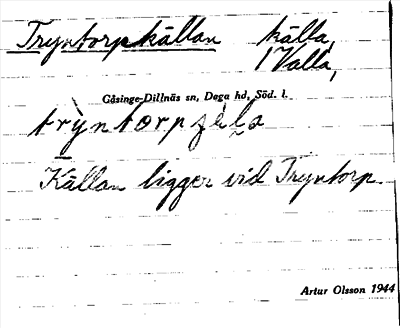 Tryntorpskällan källa,
Valla,
Gåsinge-Dillnäs sn, Daga hd, Söd. l.
Källan ligger vid Tryntorp.
Artur Olsson 1944